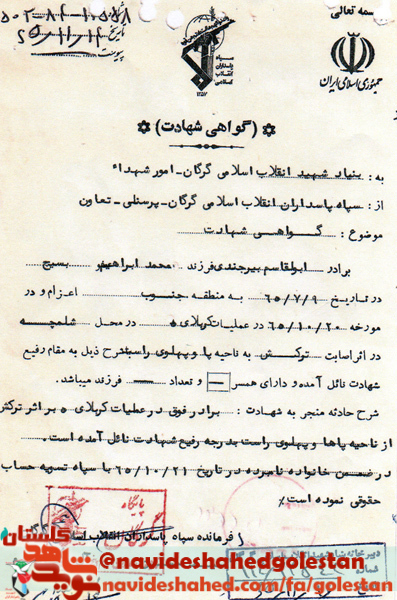 بسمه تعالی
جمهوری اسلامی ایران
سپاه
پاسداران
انقلاب
اسلامی
تاریخ
پیوست
(گواهی شهادت)
به : بنیاد شهید انقلاب اسلامی گرگان - امور شهداء
از : سپاه پاسداران انقلاب اسلامی گرگان - پرسنلی - تعاون
موضوع : گواهی شهادت
برادر ابوالقاسم بیرجندی فرزند محمد ابراهیم بسیج
در تاریخ ۶۵/۷/۹ به منطقه جنوب اعزام و در
مورخه ۶۵/۱۰/۲۰ در عملیات کربلای ۵ در محل شلمچه
در اثر اصابت ترکش به ناحیه پا و پهلوی راست بشرح ذیل به مقام رفیع
شهادت نائل آمده و دارای همسر — و تعداد — فرزند میباشد.
شرح حادثه منجر به شهادت : برادر فوق در عملیات کربلای ۵ بر اثر ترکش
از ناحیه پاها و پهلوی راست بدرجه رفیع شهادت نائل آمده است.
در ضمن خانواده نامبرده در تاریخ ۶۵/۱۰/۲۱ با سپاه تسویه حساب
حقوقی نموده است٪
پایگاه
فرمانده سپاه پاسداران انقلاب
شماره
نوید شاهد
گلستان
@navideshahedgolestan
navideshahed.com/fa/golestan